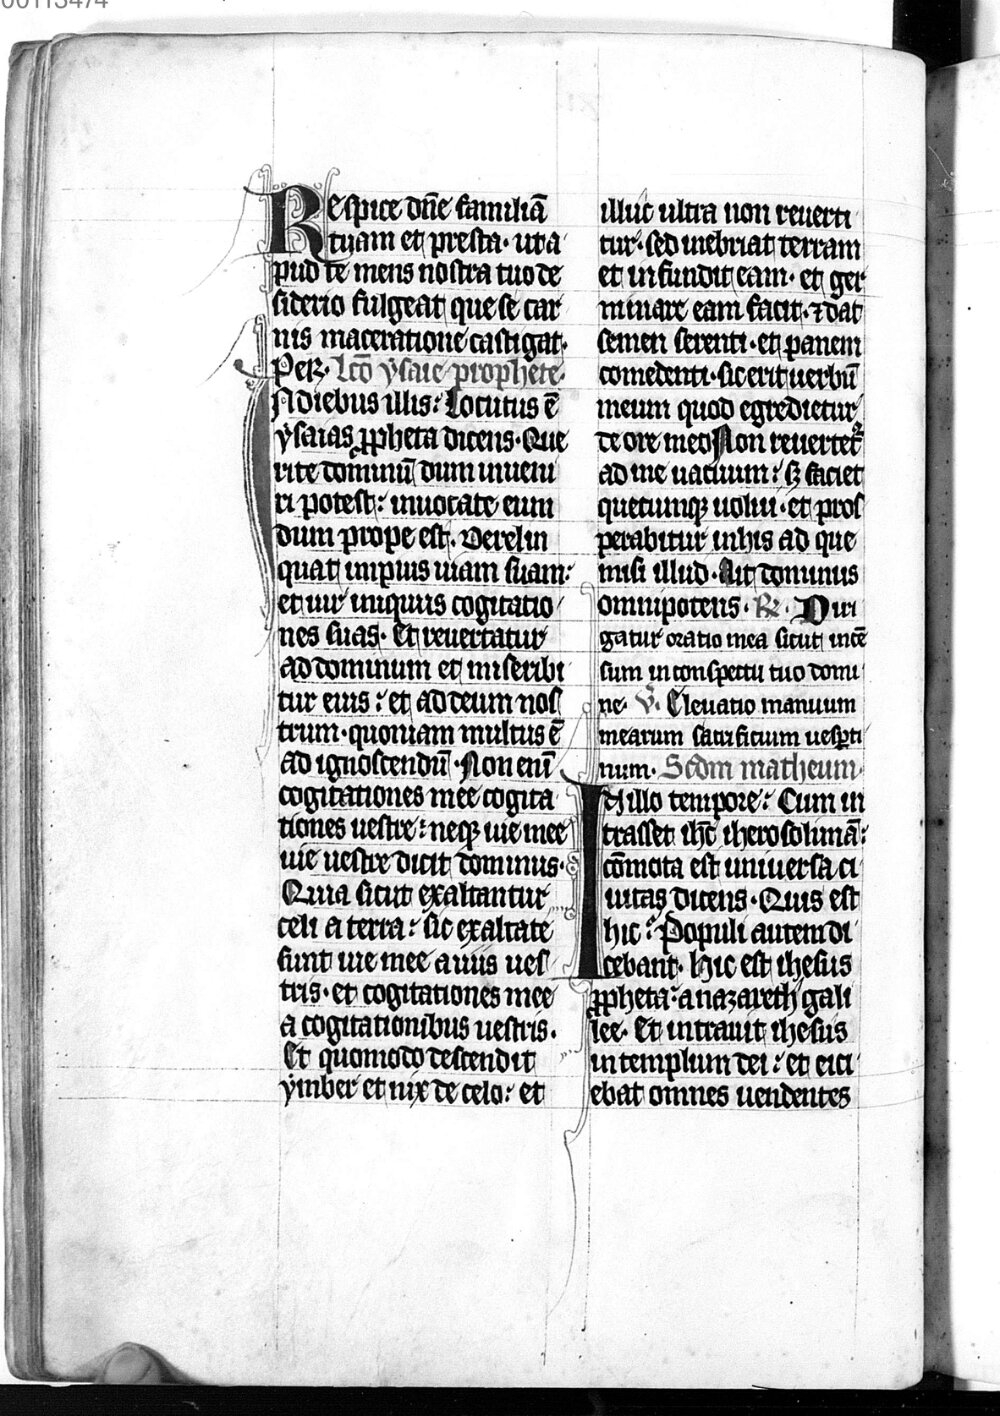 00113474
Respice dn̄e familiā
tuam et presta· ut a
pud te mens nostra tuo de
siderio fulgeat que se car
nis maceratione castigat·
Per· Lc̄o ysaie prophete·
In diebus illis: Locutus ē
ysaias ꝓpheta dicens· Que
rite dominū dum inueni
ri potest: inuocate eum
dum prope est. Derelin
quat impius uiam suam:
et uir iniquus cogitatio
nes suas· Et reuertatur
ad dominum et miserebi
tur eius: et ad deum nos
trum· quoniam multus ē
ad ignoscendū· Non enī
cogitationes mee cogita
tiones uestre: neqꝫ uie mee
uie uestre dicit dominus·
Quia sicut exaltantur
celi a terra: sic exaltate
sunt uie mee a uiis ues
tris· et cogitationes mee
a cogitationibus uestris.
Et quomodo descendit
ymber et nix de celo: et
illuc ultra non reuerti
tur· sed inebriat terram
et infundit eam· et ger
minare eam facit· ⁊ dat
semen serenti· et panem
comedenti· sic erit uerbū
meum quod egredietur
de ore meo Non reuertet᷑
ad me uacuum: sꝫ faciet
quecumqꝫ uolui· et pros
perabitur in his ad que
misi illud· Ait dominus
omnipotens· ℟. Diri
gatur oratio mea sicut incē
sum in conspectu tuo domi
ne· ℣. Eleuatio manuum
mearum sacrificium uesꝑti
num· Scd̄m matheum·
In illo tempore: Cum in
trasset ih̄c iherosolimā:
cōmota est uniuersa ci
uitas dicens· Quis est
hic: Populi autem di
cebant· Hic est ihesus
ꝓpheta· a nazareth gali
lee· Et intrauit ihesus
in templum dei: et eici
ebat omnes uendentes